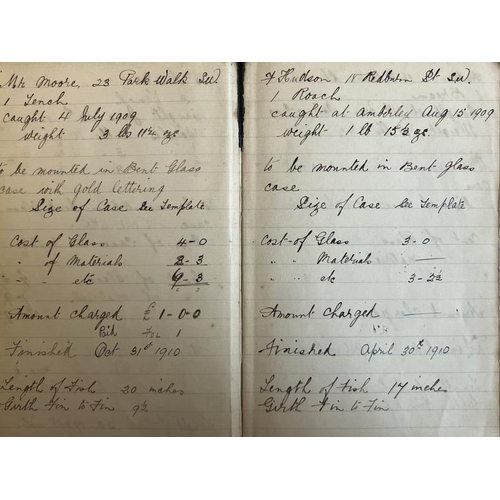 Mr Moore. 23 Park Walk S.W.
1 Tench
Caught 4 July 1909
weight 3 lbs 11¼ ozs
to be mounted in Bent Glass
case with gold lettering
Size of Case See Template
Cost of Glass 4-0
" of Materials 2-3
" " etc 6-3
Amount charged £1-0-0
1
Finished Oct 31st 1910
Length of Fish 20 inches
Girth Fin to Fin 9½
Hudson 18 Redburn St S.W.
1 Roach
caught at Amberley Aug 15 1909
weight 1 lb 15½ ozs.
to be mounted in Bent glass
case
Size of Case See Template
Cost of Glass 3-0
" " Materials —
" " etc
Amount charged —
Finished April 30th 1910
Length of Fish 17 inches
Girth Fin to Fin